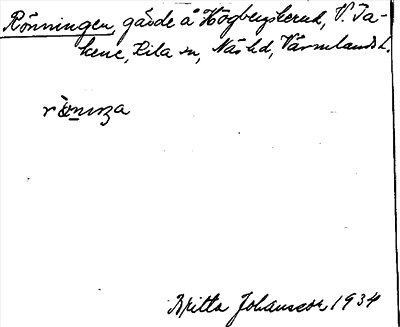 Rönningen, gärde å Högbergskerud, V. Ta-
kene, Lila sn, Näs hd, Värmlands l.
Britta Johansson 1934